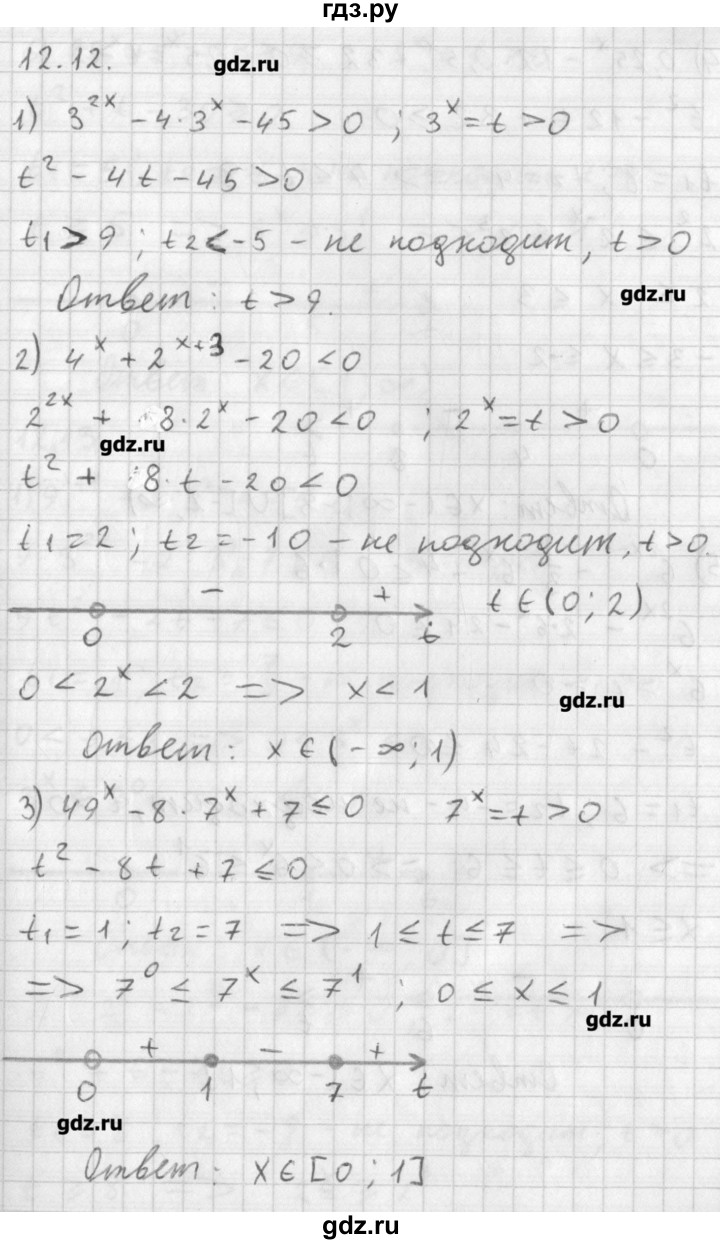 гдз.ру
12.12.
gdz.ru
1) 3^2x − 4·3^x − 45 > 0 ; 3^x = t > 0
t² − 4t − 45 > 0
t₁ > 9 ; t₂ < −5 − не подходит, t > 0
Ответ: t > 9.
gdz.ru
2) 4^x + 2^x+3 − 20 < 0
2^2x + 8·2^x − 20 < 0 ; 2^x = t > 0
gdz.ru
t² + 8·t − 20 < 0
t₁ = 2 ; t₂ = −10 − не подходит, t > 0.
− + t ∈ (0; 2)
0 2 t
0 < 2^x < 2 => x < 1
gdz.ru
Ответ: x ∈ (−∞; 1)
3) 49^x − 8·7^x + 7 ≤ 0 7^x = t > 0
t² − 8t + 7 ≤ 0
t₁ = 1 ; t₂ = 7 => 1 ≤ t ≤ 7 =>
=> 7⁰ ≤ 7^x ≤ 7¹ ; 0 ≤ x ≤ 1
gdz.ru
+ − +
0 1 7 t
gdz.ru
Ответ: x ∈ [0 ; 1]
gdz.ru